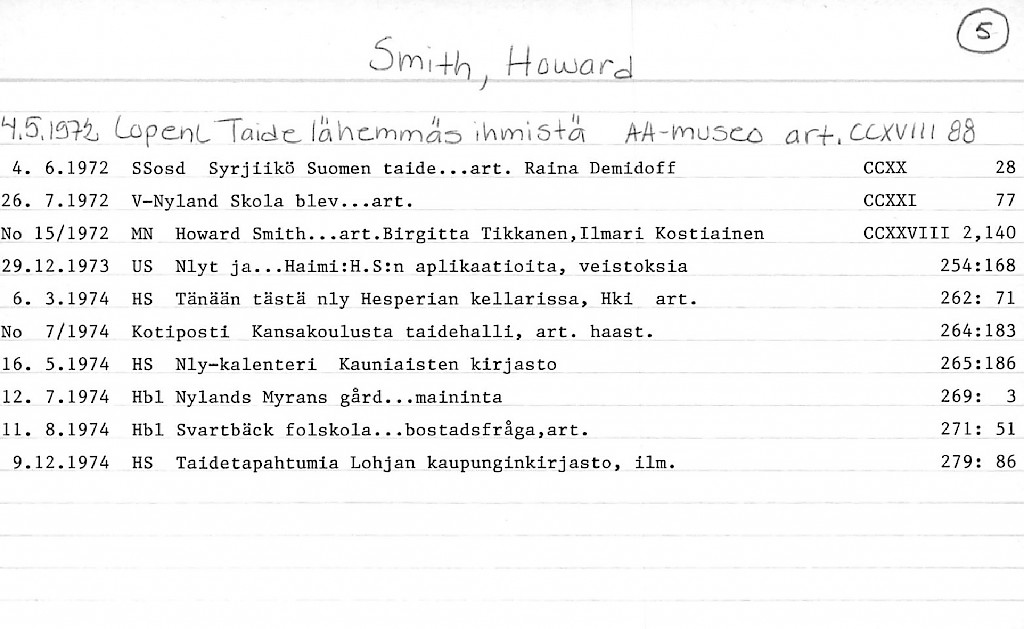 5
Smith, Howard
4.5.1972 LopenL Taide lähemmäs ihmistä AA-museo art. CCXVIII 88
4. 6.1972 SSosd Syrjiikö Suomen taide...art. Raina Demidoff CCXX 28
26. 7.1972 V-Nyland Skola blev...art. CCXXI 77
No 15/1972 MN Howard Smith...art.Birgitta Tikkanen,Ilmari Kostiainen CCXXVIII 2,140
29.12.1973 US Nlyt ja...Haimi:H.S:n aplikaatioita, veistoksia 254:168
6. 3.1974 HS Tänään tästä nly Hesperian kellarissa, Hki art. 262: 71
No 7/1974 Kotiposti Kansakoulusta taidehalli, art. haast. 264:183
16. 5.1974 HS Nly-kalenteri Kauniaisten kirjasto 265:186
12. 7.1974 Hbl Nylands Myrans gård...maininta 269: 3
11. 8.1974 Hbl Svartbäck folskola...bostadsfråga,art. 271: 51
9.12.1974 HS Taidetapahtumia Lohjan kaupunginkirjasto, ilm. 279: 86